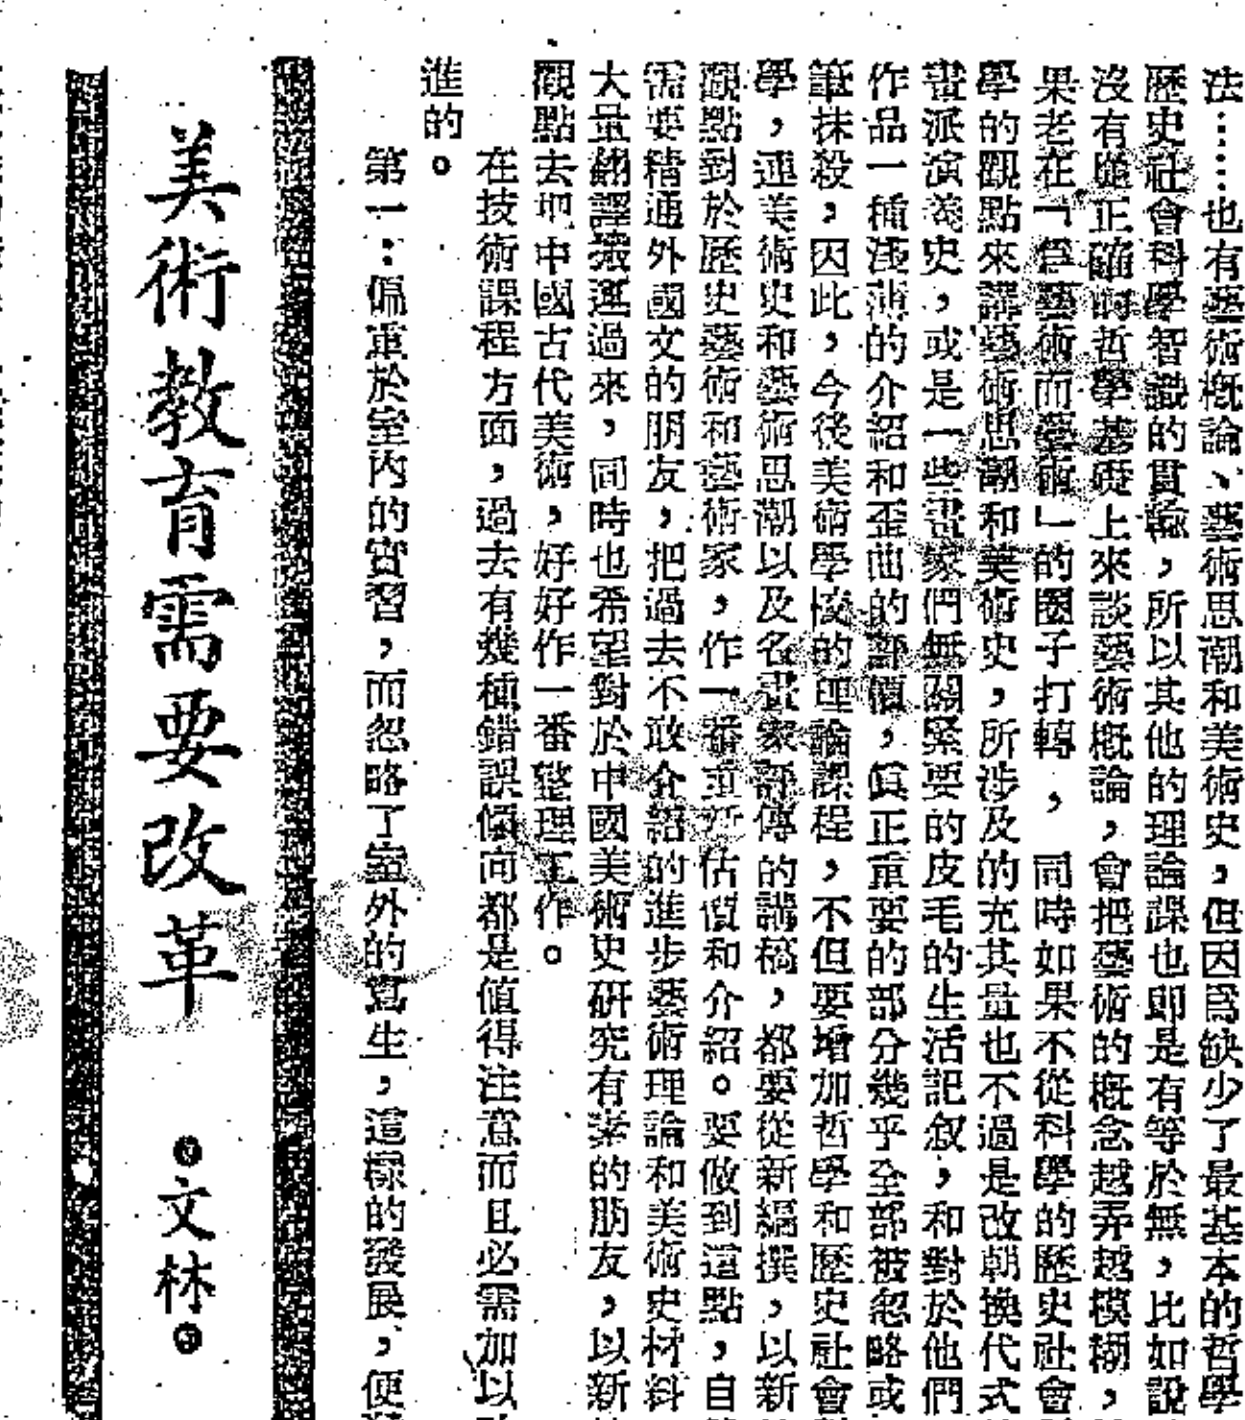 法……也有藝術概論、藝術思潮和美術史，但因爲缺少了最基本的哲學
歷史社會科學智識的貫輸，所以其他的理論課也即是有等於無，比如說
沒有從正確的哲學基礎上來談藝術概論，會把藝術的概念越弄越模糊，
果老在「爲藝術而藝術」的圈子打轉，同時如果不從科學的歷史社會
學的觀點來講藝術思潮和美術史，所涉及的充其量也不過是改朝換代式
畫派演義史，或是一些畫家們無關緊要的皮毛的生活記叙，和對於他們
作品一種淺薄的介紹和歪曲的評價，眞正重要的部分幾乎全部被忽略或
筆抹殺，因此，今後美術學校的理論課程，不但要增加哲學和歷史社會
學，連美術史和藝術思潮以及名畫家評傳的講稿，都要從新編撰，以新
觀點對於歷史藝術和藝術家，作一番重新估價和介紹。要做到這點，自
需要精通外國文的朋友，把過去不敢介紹的進步藝術理論和美術史材料
大量翻譯搬運過來，同時也希望對於中國美術史研究有素的朋友，以新
觀點去把中國古代美術，好好作一番整理工作。
在技術課程方面，過去有幾種錯誤傾向都是值得注意而且必需加以
進的。
第一：偏重於室內的實習，而忽略了室外的寫生，這樣的發展，便
美術教育需要改革
文林